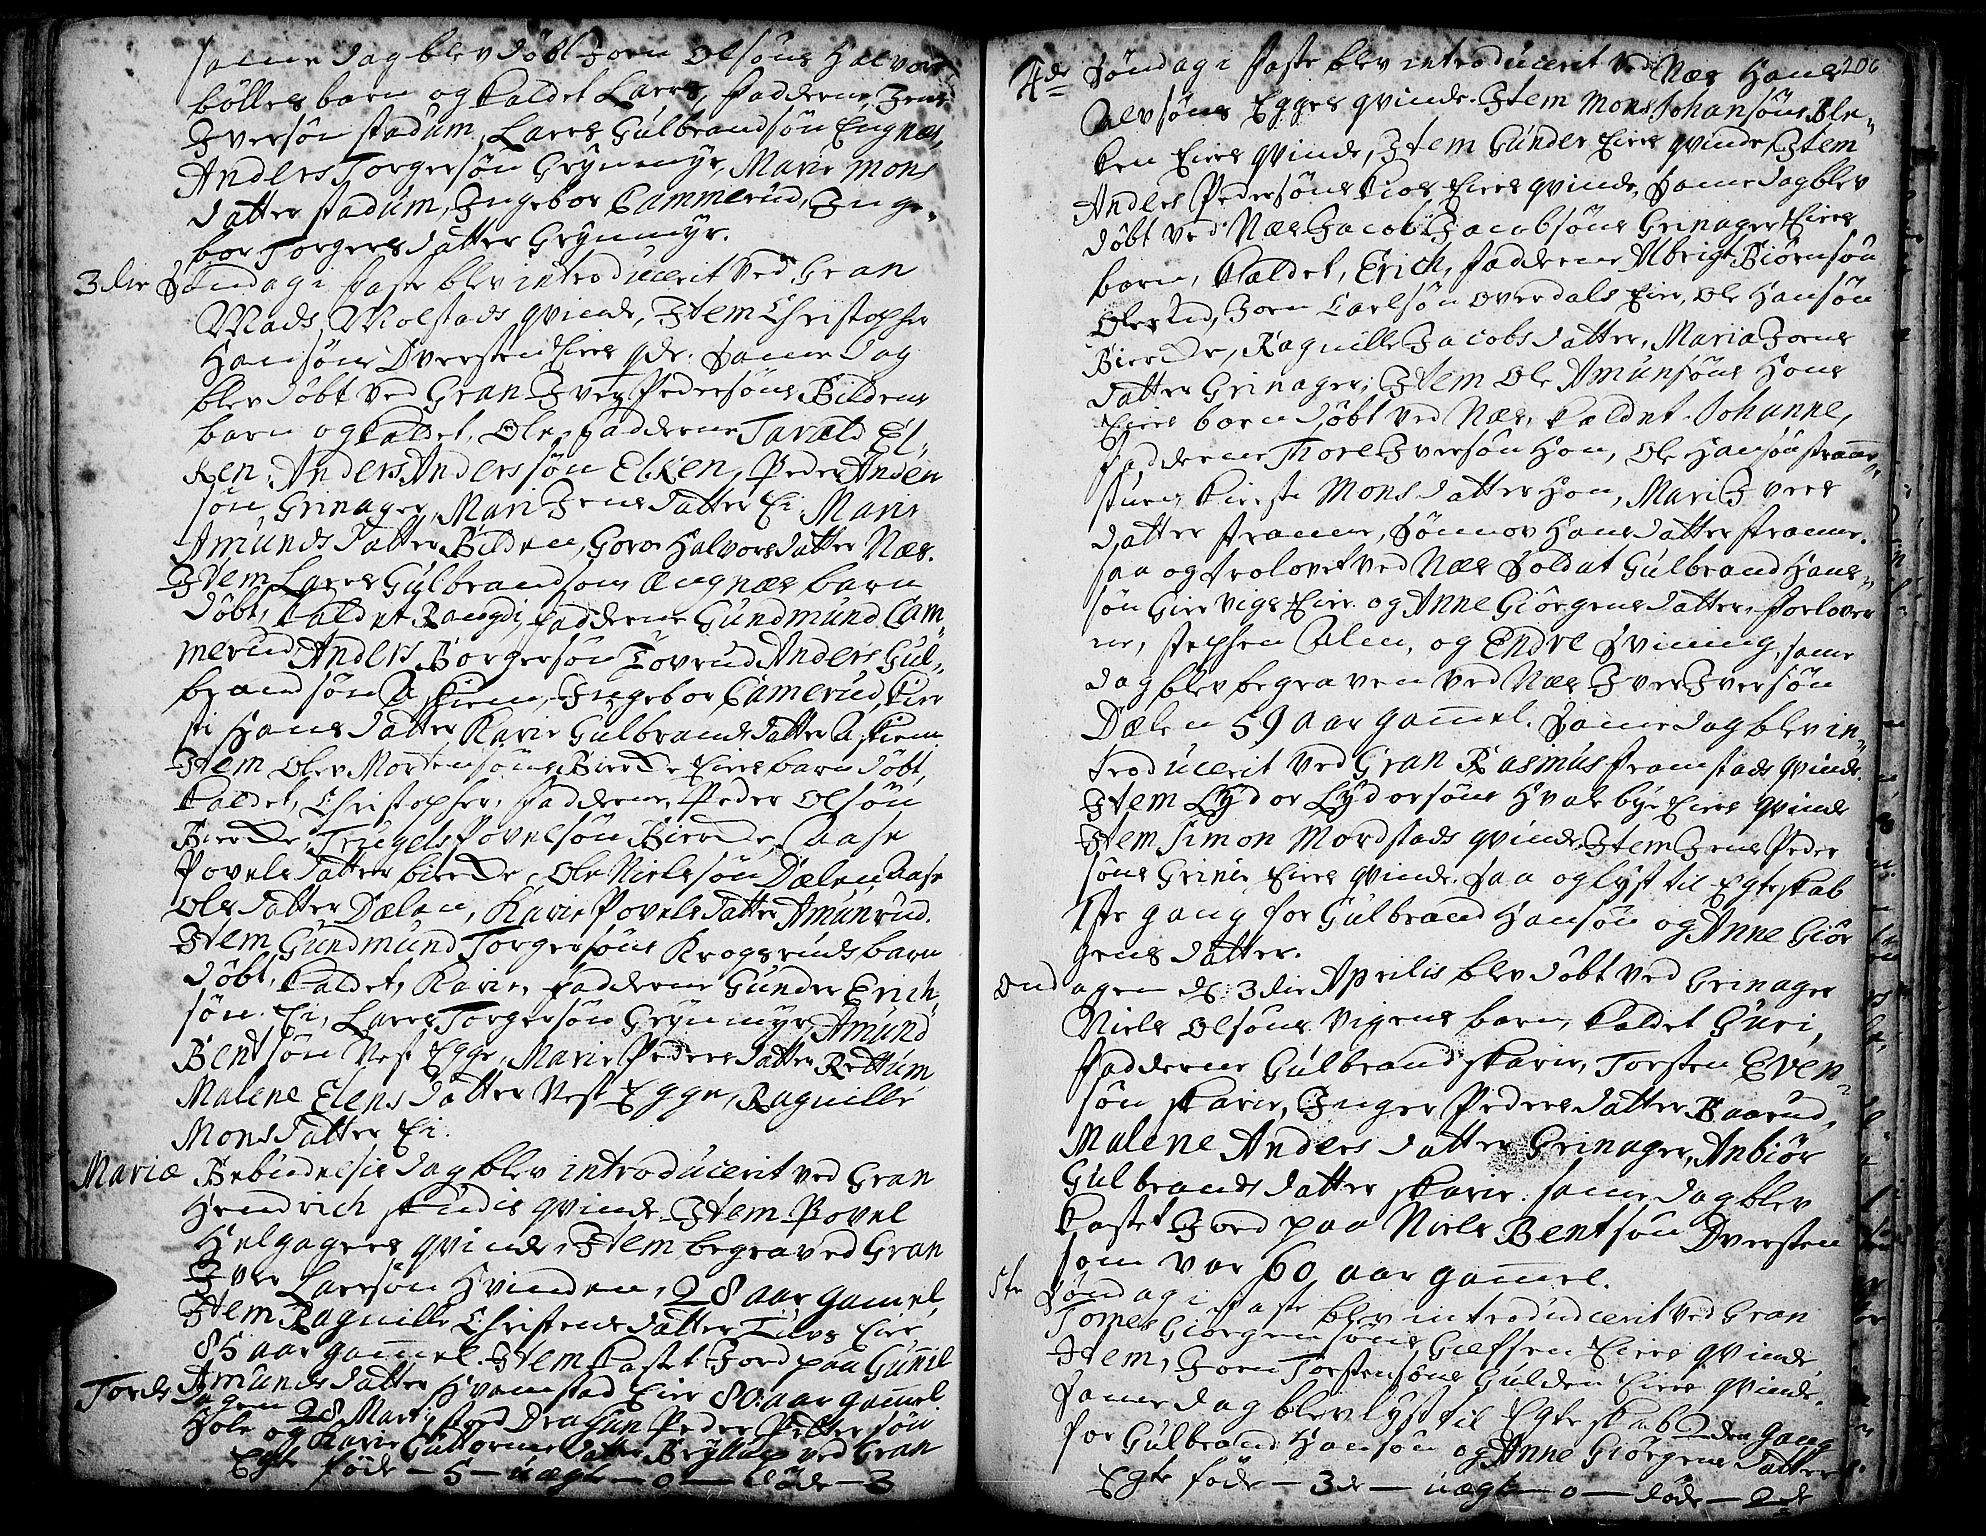 Same dag blev døbt Joen Olsøns Halvors
bølles barn og kaldet Lars, fadderne, Jens
Iversøn stadum, Lars Gulbrandsøn Engnæs,
Anders Torgersøn Grynmyr, Marie Mons
datter stadum, Ingebor Cammerud, Inge-
bor Torgersdatter Grynmyr.
3die Søndag i faste blev introducerit ved Gran
Mads Molstads qvinde, Item Christopher
Hansøns Dversten Eies qde. Same dag
blev døbt ved Gran Iver Pedersøns Bildens
barn og kaldet, Ole, fadderne Tarald El-
ken, Anders Anderssøn Elken, Peder Anders
søn Grinager, Mari Jensdatter Ei, Marie
Amunds datter Bilden, Goro Halvorsdatter Næs.
Item Lars Gulbrandsøns Engnæs barn
døbt, kaldet Rangdi, fadderne Gundmund Cam
merud Anders Borgersøn Tovrud Anders Gul-
brandsøn Askiem, Ingebor Camerud, Kier
sti Hansdatter, Karie Gulbrandsdatter Askiem
Item Olev Mortensøns Bierke Eies barn døbt,
kaldet, Christopher, fadderne, Peder Olsøn
Bierke, Trugels Povelsøn Bierke, Aase
Povelsdatter bierke, Ole Nielssøn Dælen, Aase
Olsdatter Dælen, Karie Povelsdatter Amunrud.
Item Gundmund Torgersøns Krogsruds barn
døbt, kaldet, Karie, fadderne Gunder Erich-
søn Ei, Lars Torgersøn Grynmyr, Amund
Bentsøn Vest Egge, Marie Pedersdatter Rettum,
Malene Elensdatter Vest Egge, Ragnille
Monsdatter Ei.
Mariæ Bebudelsis dag blev introducerit ved Gran
Hendrich skindis qvinde Item Povel
Helgagers qvinde, Item begraved Gran
Iver Larsøn Hvinden, 28 aar gamel,
Item Ragnille Christensdatter Eie
85 aar gammel. Item kastet Jord paa Gunil
Amundsdatter Hvamstad Eie 80 aar gamel
Torsdagen 28 Martij stod Dragun Peder Pettersøn
Hole og Karie Guttormsdatter Bryllup ved Gran
Egte føde - 5 - uægte - 0 - døde - 3
206
4de Søndag i faste blev introducerit ved Næs Hans
Alvsøns Egges qvinde. Item Mons Johansøns Ble-
ken Eies qvinde, Item Gunder Eies qvinde, Item
Anders Pedersøns Kios Eies qvinde, Same dag blev
døbt ved Næs Jacob Jacobsøns Grinager Eies
barn, kaldet, Erich, fadderne Albrigt Biørnsøn
Olerud, Joen Carlsøn Overdals Eie, Ole Hansøn
Bierke, Ragnille Jacobsdatter, Maria Joens
datter Grinager, Item Ole Amunsøns Hons
Eies barn døbt ved Næs, kaldet Johanne,
fadderne Thore Iversøn Hon, Ole Hansøn stran-
stuen, Kirsti Monsdatter Hon, Mari Ivers
datter stranne, Sønnov Hansdatter stranne.
saa og trolovet ved Næs Soldat Gulbrand Hans-
søn Giervigs Eie og Anne Giørgensdatter, forlover
ne, stephen Alm, og Endre Svinning, same
dag blev begraven ved Næs Iver Iversøn
Dælen 59 aar gamel. Same dag blev in-
troducerit ved Gran Rasmus framstads qvinde.
Item Lydor Lydorsøns Hvalebye Eies qvinde
Item Simon Mordstads qvinde. Item Jens Peder
søns Grinie Eies qvinde. saa og lyst til Egteskab
1ste gang for Gulbrand Hansøn og Anne Giør
gens datter.
Ondagen d. 3die Aprilis blev døbt ved Grinager
Niels Olsøns Vigens barn, kaldet Guri,
fadderne Gulbrand skarie, Torsten Even-
søn skarie, Inger Pedersdatter Baarud,
Malene Andersdatter Grinager, Anbiør
Gulbrandsdatter skarie. same dag blev
kastet Jord paa Niels Bentsøn Dversten
som var 60 aar gamel.
5te Søndag i faste blev introducerit ved Gran
Tomes Giørgensøns Gleffsen Eies qvinde
Item, Joen Torstensøns Gulden Eies qvinde.
Same dag blev lyst til Egteskab 2den gang
for Gulbrand Hansøn og Anne Giørgensdatter
Egte føde - 3de - uægte - 0 - døde - 2de